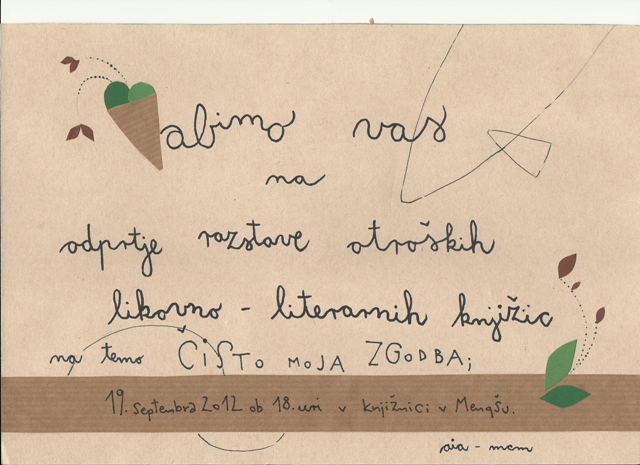 Vabimo vas
na
odprtje razstave otroških
likovno - literarnih knjižic
na temo ČISTO MOJA ZGODBA;
19. septembra 2012 ob 18. uri v knjižnici v Mengšu.
aia - mcm